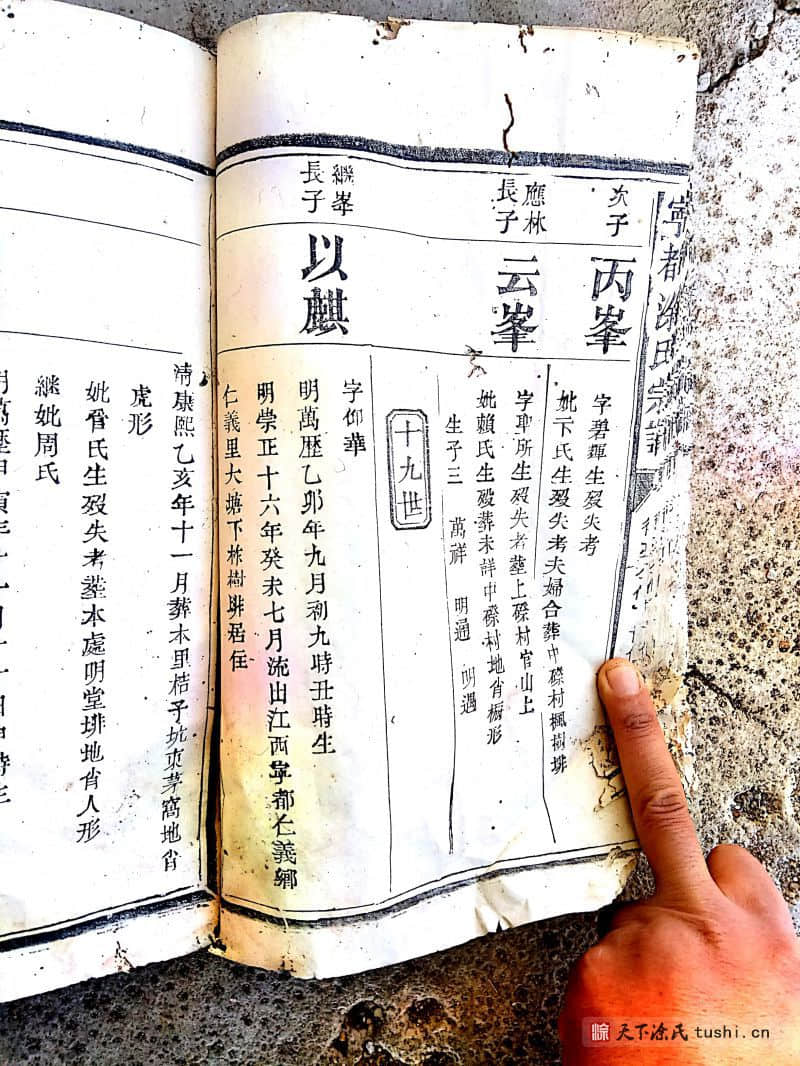 寧都涂氏宗譜
次子
丙峯
字碧輝生歿失考
妣卞氏生歿失考夫婦合葬中磜村楓樹排
應林
長子
云峯
字聖所生歿失考葬上磜村官山上
妣賴氏生歿葬未詳中磜村地肖櫥形
生子三 萬祥 明通 明遇
十九世
繼峯
長子
以麒
字仰華
明萬歷乙卯年九月初九時丑時生
明崇正十六年癸未七月流山江西寧都仁義鄉
仁義里大塘下株樹排居住
清康熙乙亥年十一月葬本里桔子坑東茅窩地肖
虎形
妣曾氏生歿失考葬本處明堂排地肖人形
継妣周氏
明萬歷甲寅年十一月十一日申時生
涂 天下涂氏 tushi.cn